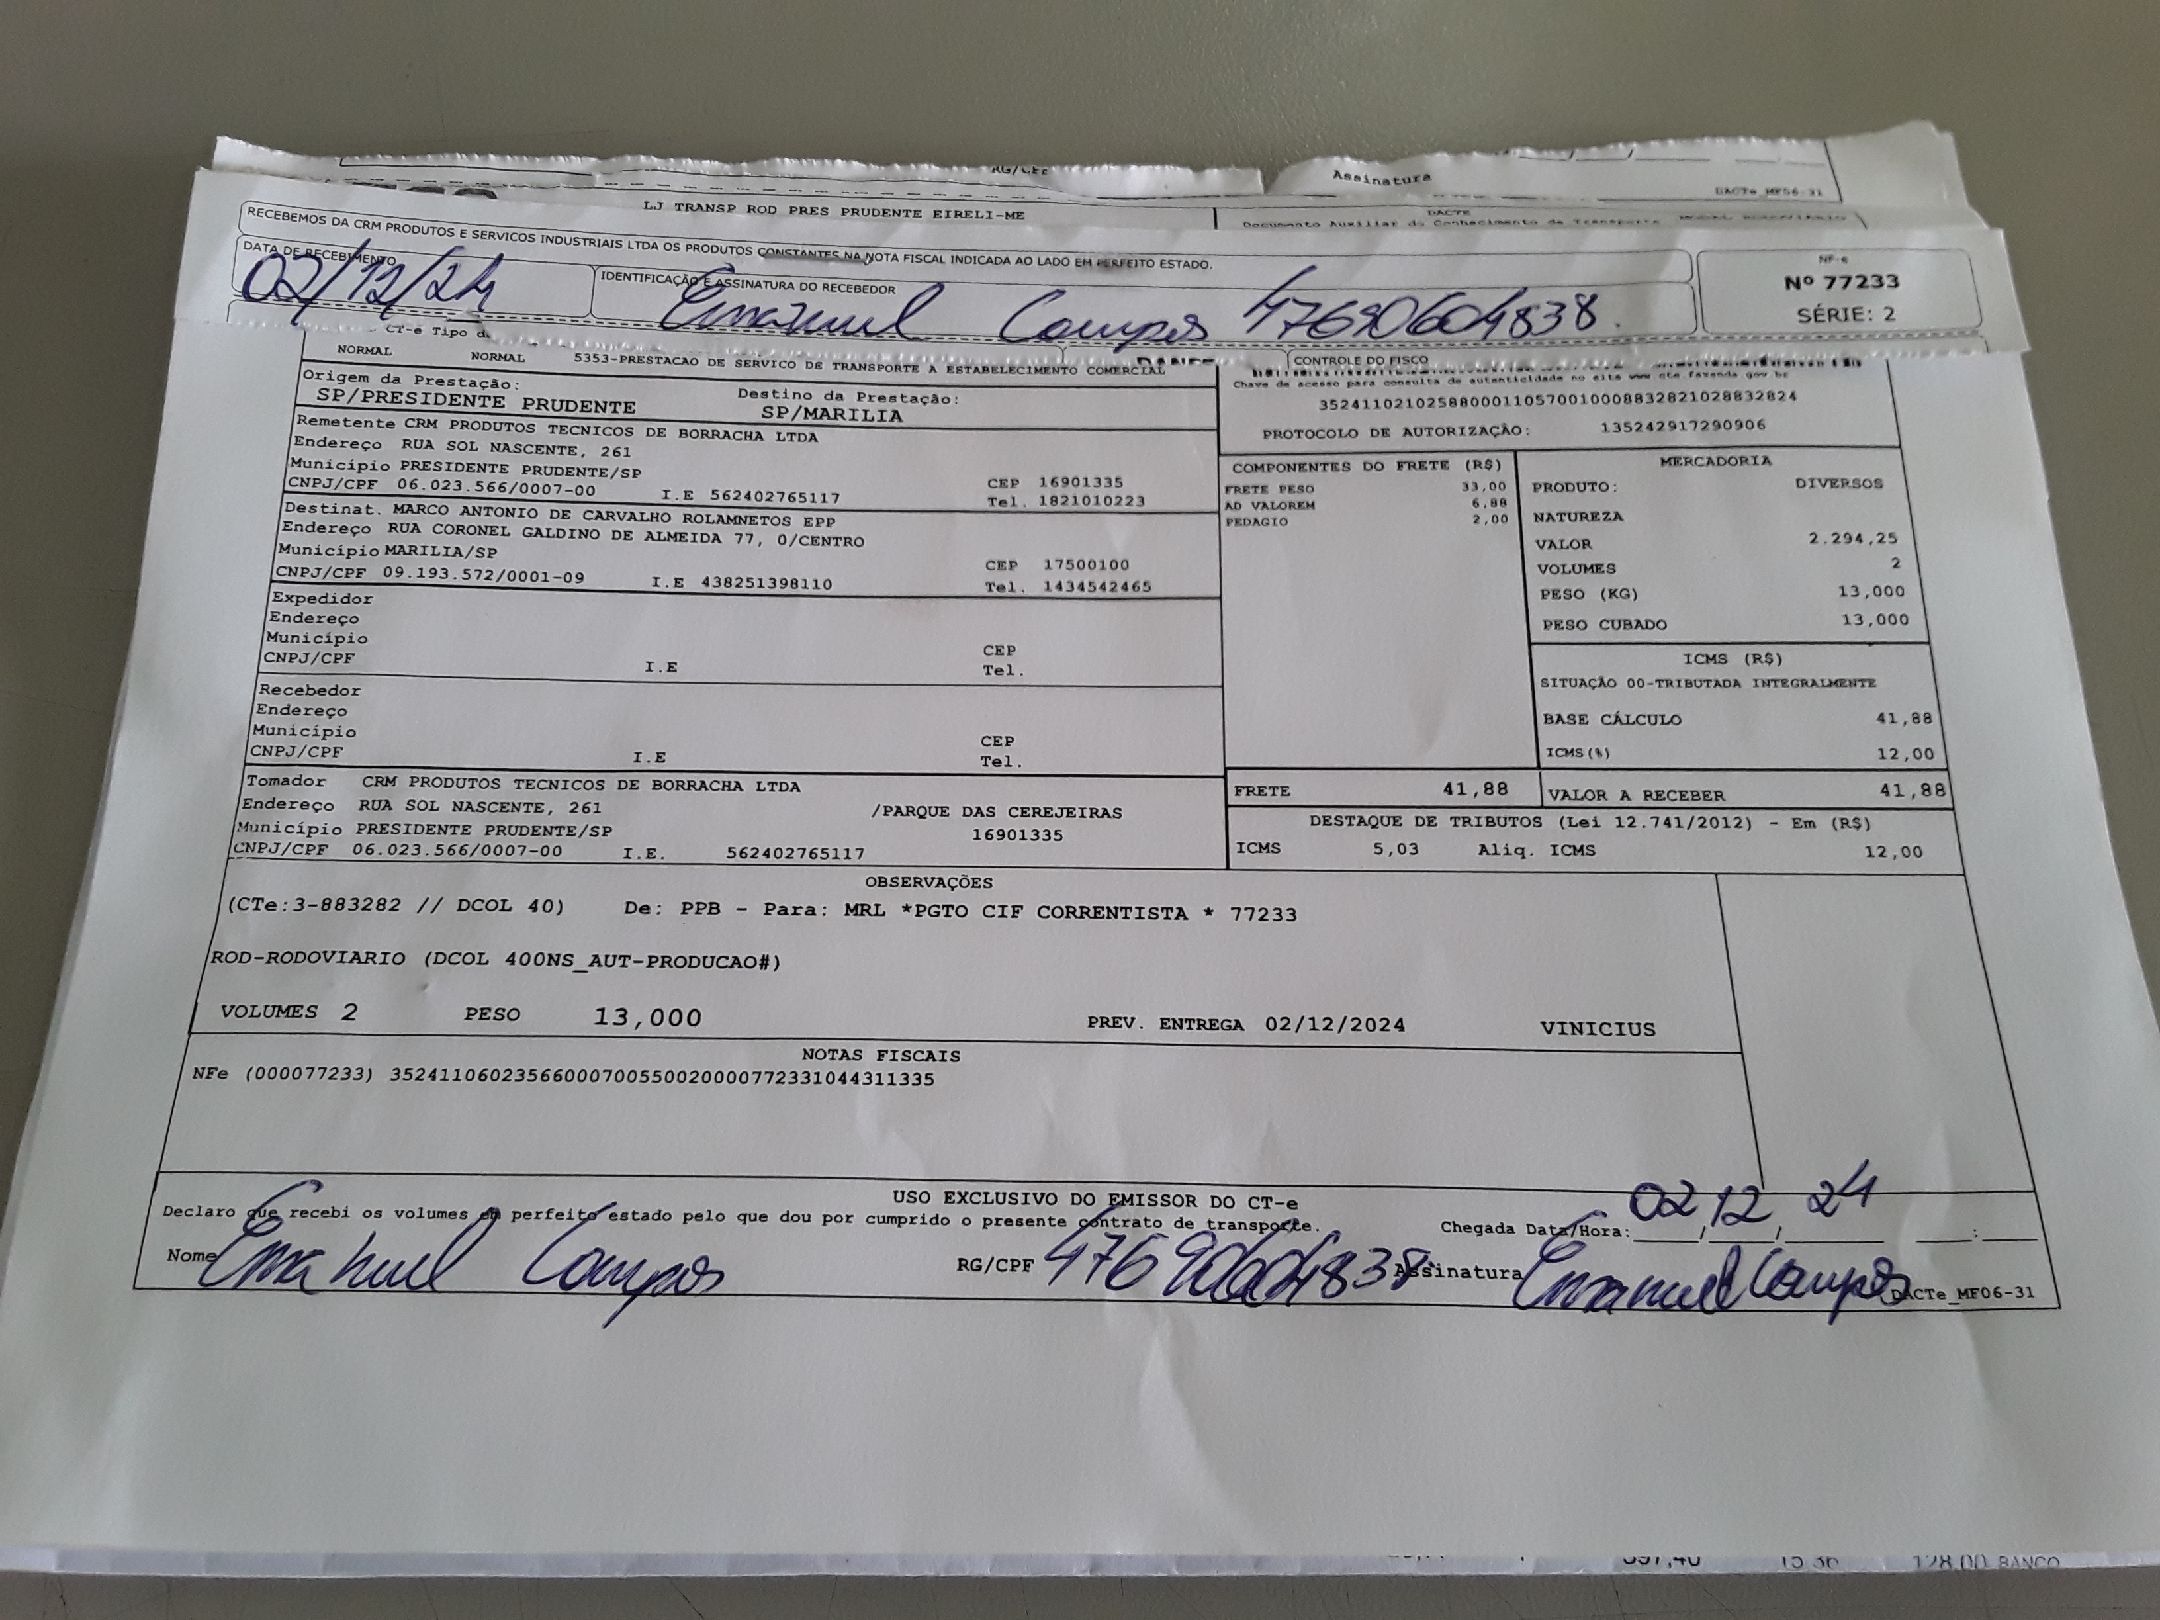 RG/CPF Assinatura
DACTe_MF06-31
LJ TRANSP ROD PRES PRUDENTE EIRELI-ME
DACTE
Documento Auxiliar do Conhecimento de Transporte
RECEBEMOS DA CRM PRODUTOS E SERVICOS INDUSTRIAIS LTDA OS PRODUTOS CONSTANTES NA NOTA FISCAL INDICADA AO LADO EM PERFEITO ESTADO.
DATA DE RECEBIMENTO
02/12/24
IDENTIFICAÇÃO E ASSINATURA DO RECEBEDOR
Emanuel Campos 47690604838
NF-e
Nº 77233
SÉRIE: 2
CT-e Tipo d
NORMAL NORMAL 5353-PRESTACAO DE SERVICO DE TRANSPORTE A ESTABELECIMENTO COMERCIAL
DANFE
CONTROLE DO FISCO
Chave de acesso para consulta de autenticidade no site www.cte.fazenda.gov.br
35241102102588000110570010008832821028832824
PROTOCOLO DE AUTORIZAÇÃO: 135242917290906
Origem da Prestação: Destino da Prestação:
SP/PRESIDENTE PRUDENTE SP/MARILIA
Remetente CRM PRODUTOS TECNICOS DE BORRACHA LTDA
Endereço RUA SOL NASCENTE, 261
Município PRESIDENTE PRUDENTE/SP CEP 16901335
CNPJ/CPF 06.023.566/0007-00 I.E 562402765117 Tel. 1821010223
Destinat. MARCO ANTONIO DE CARVALHO ROLAMNETOS EPP
Endereço RUA CORONEL GALDINO DE ALMEIDA 77, 0/CENTRO
Município MARILIA/SP CEP 17500100
CNPJ/CPF 09.193.572/0001-09 I.E 438251398110 Tel. 1434542465
Expedidor
Endereço
Município CEP
CNPJ/CPF I.E Tel.
Recebedor
Endereço
Município CEP
CNPJ/CPF I.E Tel.
Tomador CRM PRODUTOS TECNICOS DE BORRACHA LTDA
Endereço RUA SOL NASCENTE, 261 /PARQUE DAS CEREJEIRAS
Município PRESIDENTE PRUDENTE/SP 16901335
CNPJ/CPF 06.023.566/0007-00 I.E. 562402765117
COMPONENTES DO FRETE (R$)
FRETE PESO 33,00
AD VALOREM 6,88
PEDAGIO 2,00
MERCADORIA
PRODUTO: DIVERSOS
NATUREZA
VALOR 2.294,25
VOLUMES 2
PESO (KG) 13,000
PESO CUBADO 13,000
ICMS (R$)
SITUAÇÃO 00-TRIBUTADA INTEGRALMENTE
BASE CÁLCULO 41,88
ICMS(%) 12,00
FRETE 41,88 VALOR A RECEBER 41,88
DESTAQUE DE TRIBUTOS (Lei 12.741/2012) - Em (R$)
ICMS 5,03 Aliq. ICMS 12,00
OBSERVAÇÕES
(CTe:3-883282 // DCOL 40) De: PPB - Para: MRL *PGTO CIF CORRENTISTA * 77233
ROD-RODOVIARIO (DCOL 400NS_AUT-PRODUCAO#)
VOLUMES 2 PESO 13,000 PREV. ENTREGA 02/12/2024 VINICIUS
NOTAS FISCAIS
NFe (000077233) 35241106023566000700550020000772331044311335
USO EXCLUSIVO DO EMISSOR DO CT-e
Declaro que recebi os volumes em perfeito estado pelo que dou por cumprido o presente contrato de transporte. Chegada Data/Hora: 02/12/24 :
Nome Emanuel Campos RG/CPF 47690604838 Assinatura Emanuel Campos
DACTe_MF06-31
128,00 BANCO